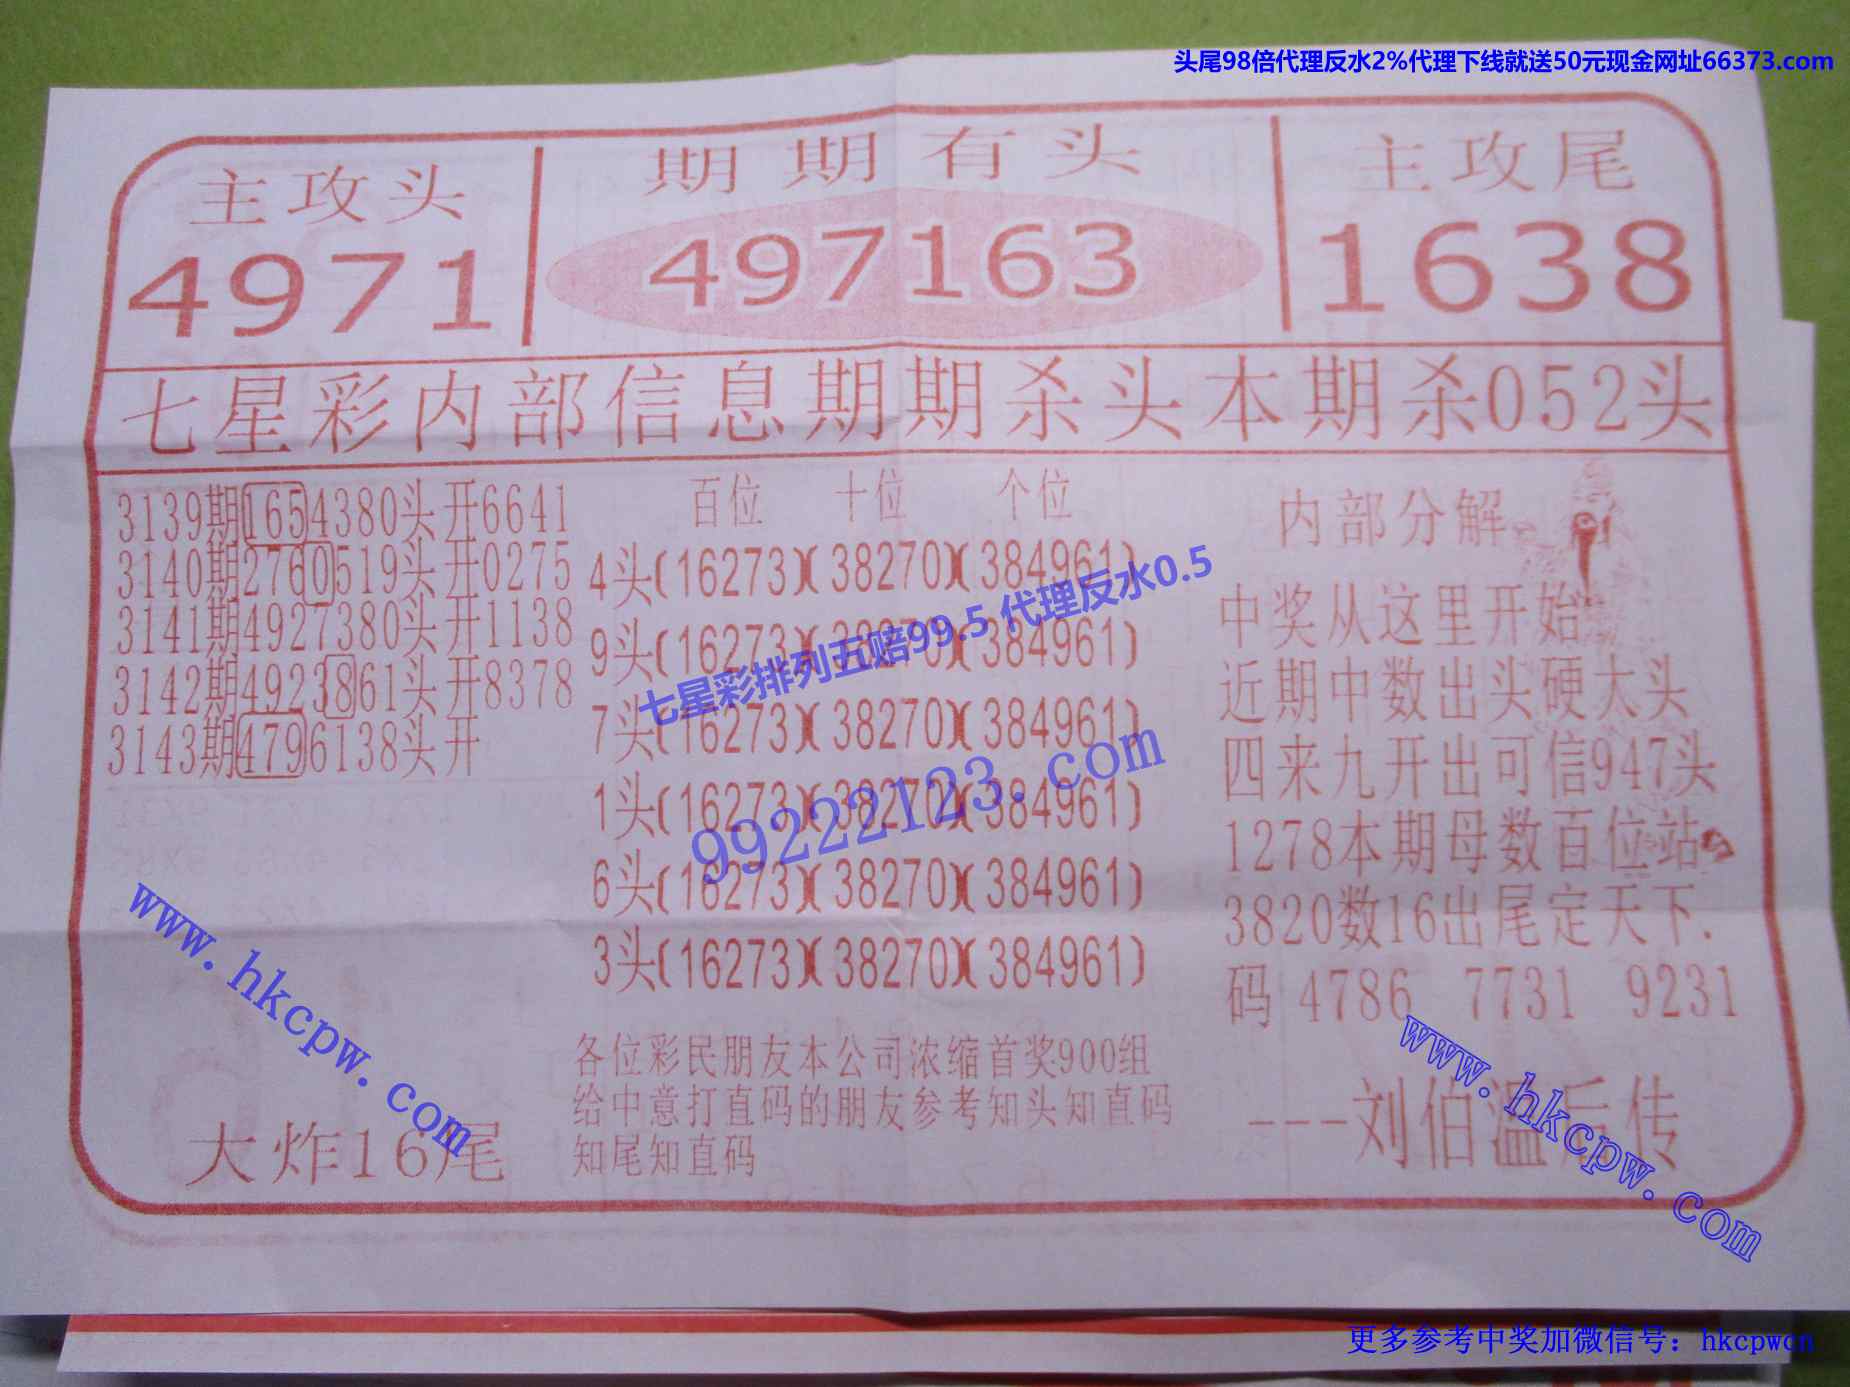 头尾98倍代理反水2%代理下线就送50元现金网址66373.com
主攻头 期期有头 主攻尾
4971 497163 1638
七星彩内部信息期期杀头本期杀052头
3139期1654380头开6641
3140期2760519头开0275
3141期4927380头开1138
3142期4923861头开8378
3143期4796138头开
大炸16尾
百位 十位 个位
4头(16273)(38270)(384961)
9头(16273)(38270)(384961)
7头(16273)(38270)(384961)
1头(16273)(38270)(384961)
6头(16273)(38270)(384961)
3头(16273)(38270)(384961)
各位彩民朋友本公司浓缩首奖900组
给中意打直码的朋友参考知头知直码
知尾知直码
内部分解
中奖从这里开始
近期中数出头硬大头
四来九开出可信947头
1278本期母数百位站
3820数16出尾定天下.
码 4786 7731 9231
---刘伯温后传
七星彩排列五赔99.5 代理反水0.5
99222123.com
www.hkcpw.com
www.hkcpw.com
更多参考中奖加微信号：hkcpwcn